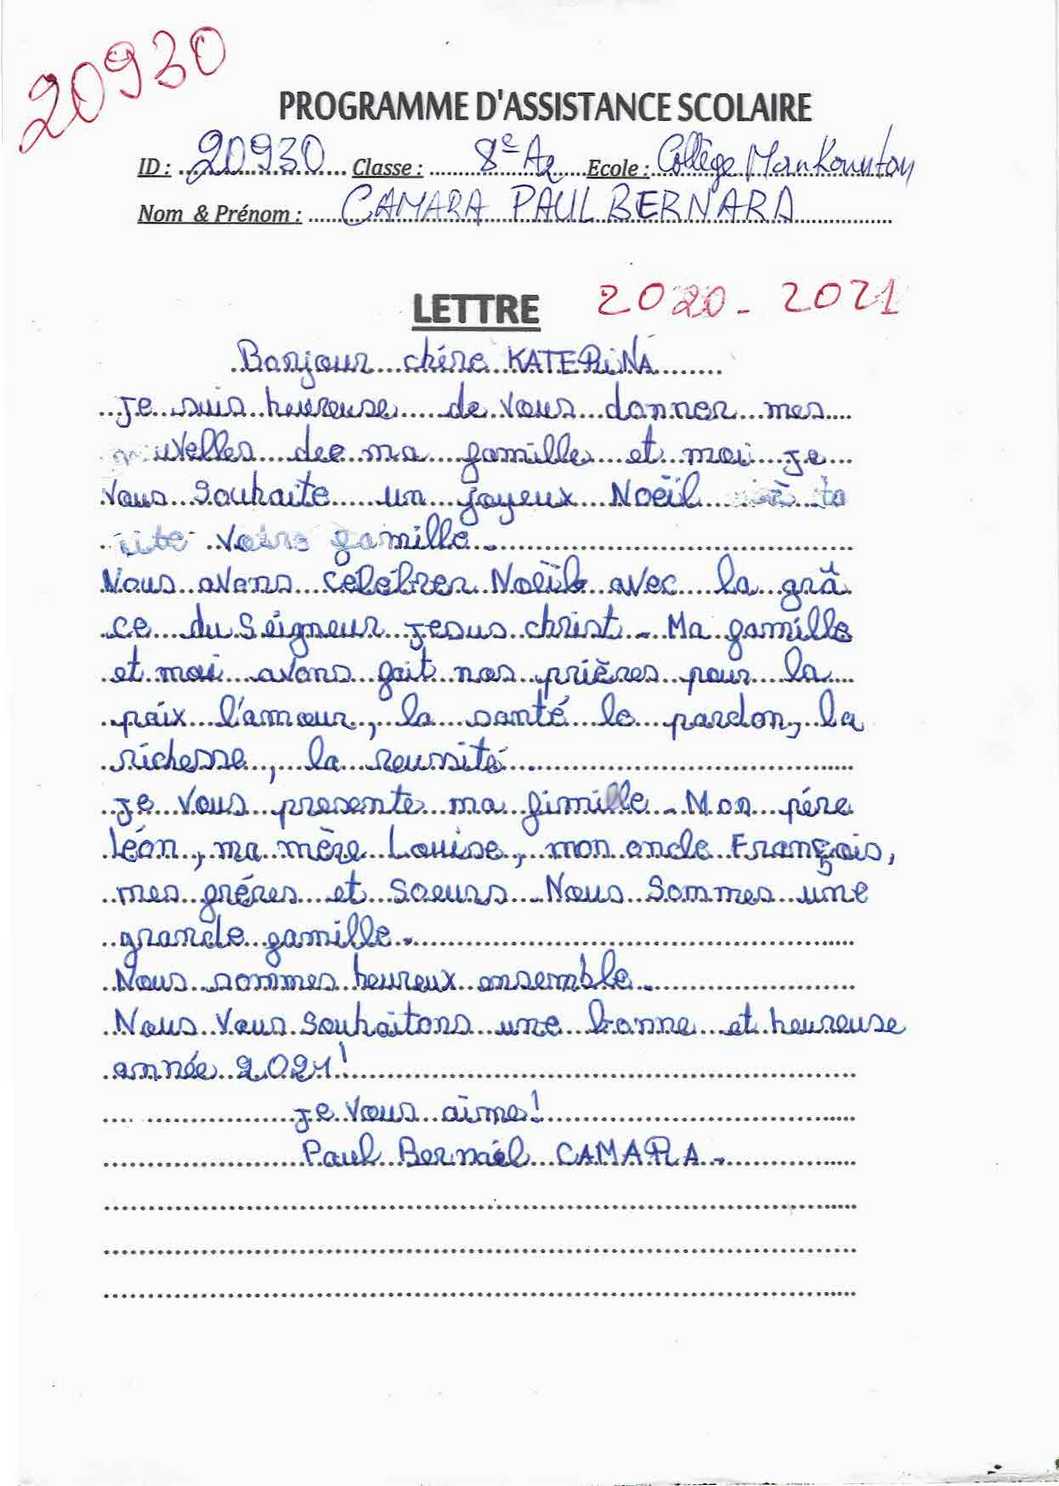 20930
PROGRAMME D'ASSISTANCE SCOLAIRE
ID : 20930 Classe : 8e A2 Ecole : Collège Mankountou
Nom & Prénom : CAMARA PAUL BERNARD
LETTRE 2020-2021
Bonjour chère KATERINA
Je suis heureuse de vous donner mes
nouvelles dee ma famille et moi je
vous souhaite un joyeux Noëil à to
ute votre famille.
Nous avons célébrer Noëil avec la grâ
ce du Seigneur Jesus christ. Ma famille
et moi avons fait nos prières pour la
paix l'amour, la santé le pardon, la
richesse, la reussité
Je vous presente ma fimille. Mon père
léon, ma mère Louise, mon oncle Français,
mes fréres et Soeurs. Nous Sommes une
grande famille.
Nous sommes heureux ensemble.
Nous Vous Souhaitons une bonne et heureuse
année 2021!
Je Vous aime!
Paul CAMARA.